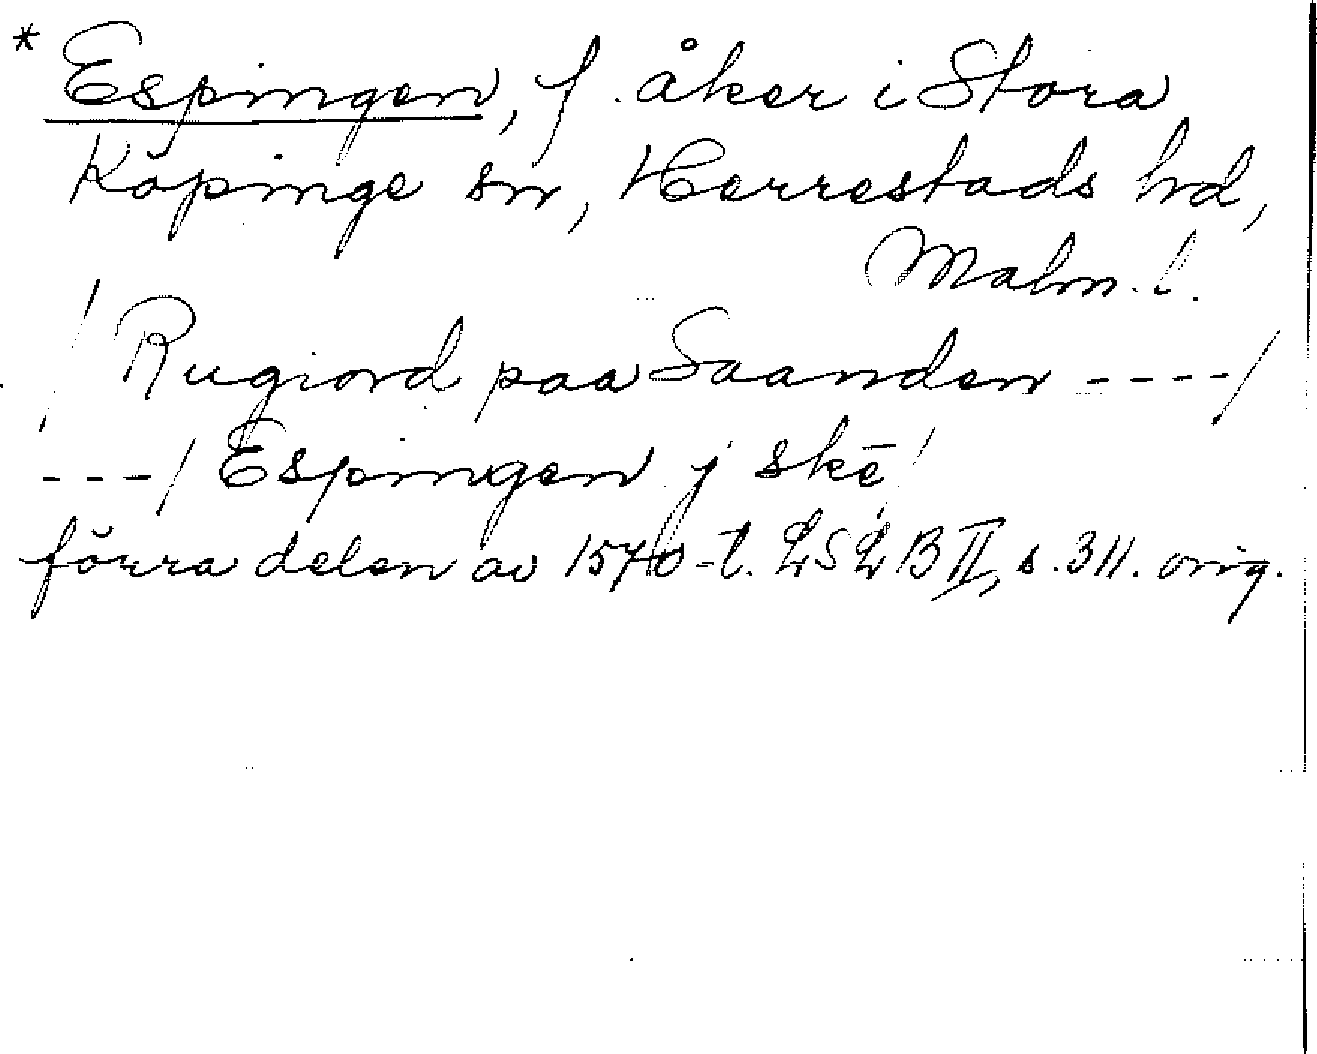 * Espingen, f. åker i Stora
Köpinge sn, Herrestads hd,
Malm. l.
/ Rugiord paa Saanden ----/
---/ Espingen j skē /
förra delen av 1570-t. LSLB II, s. 311. orig.